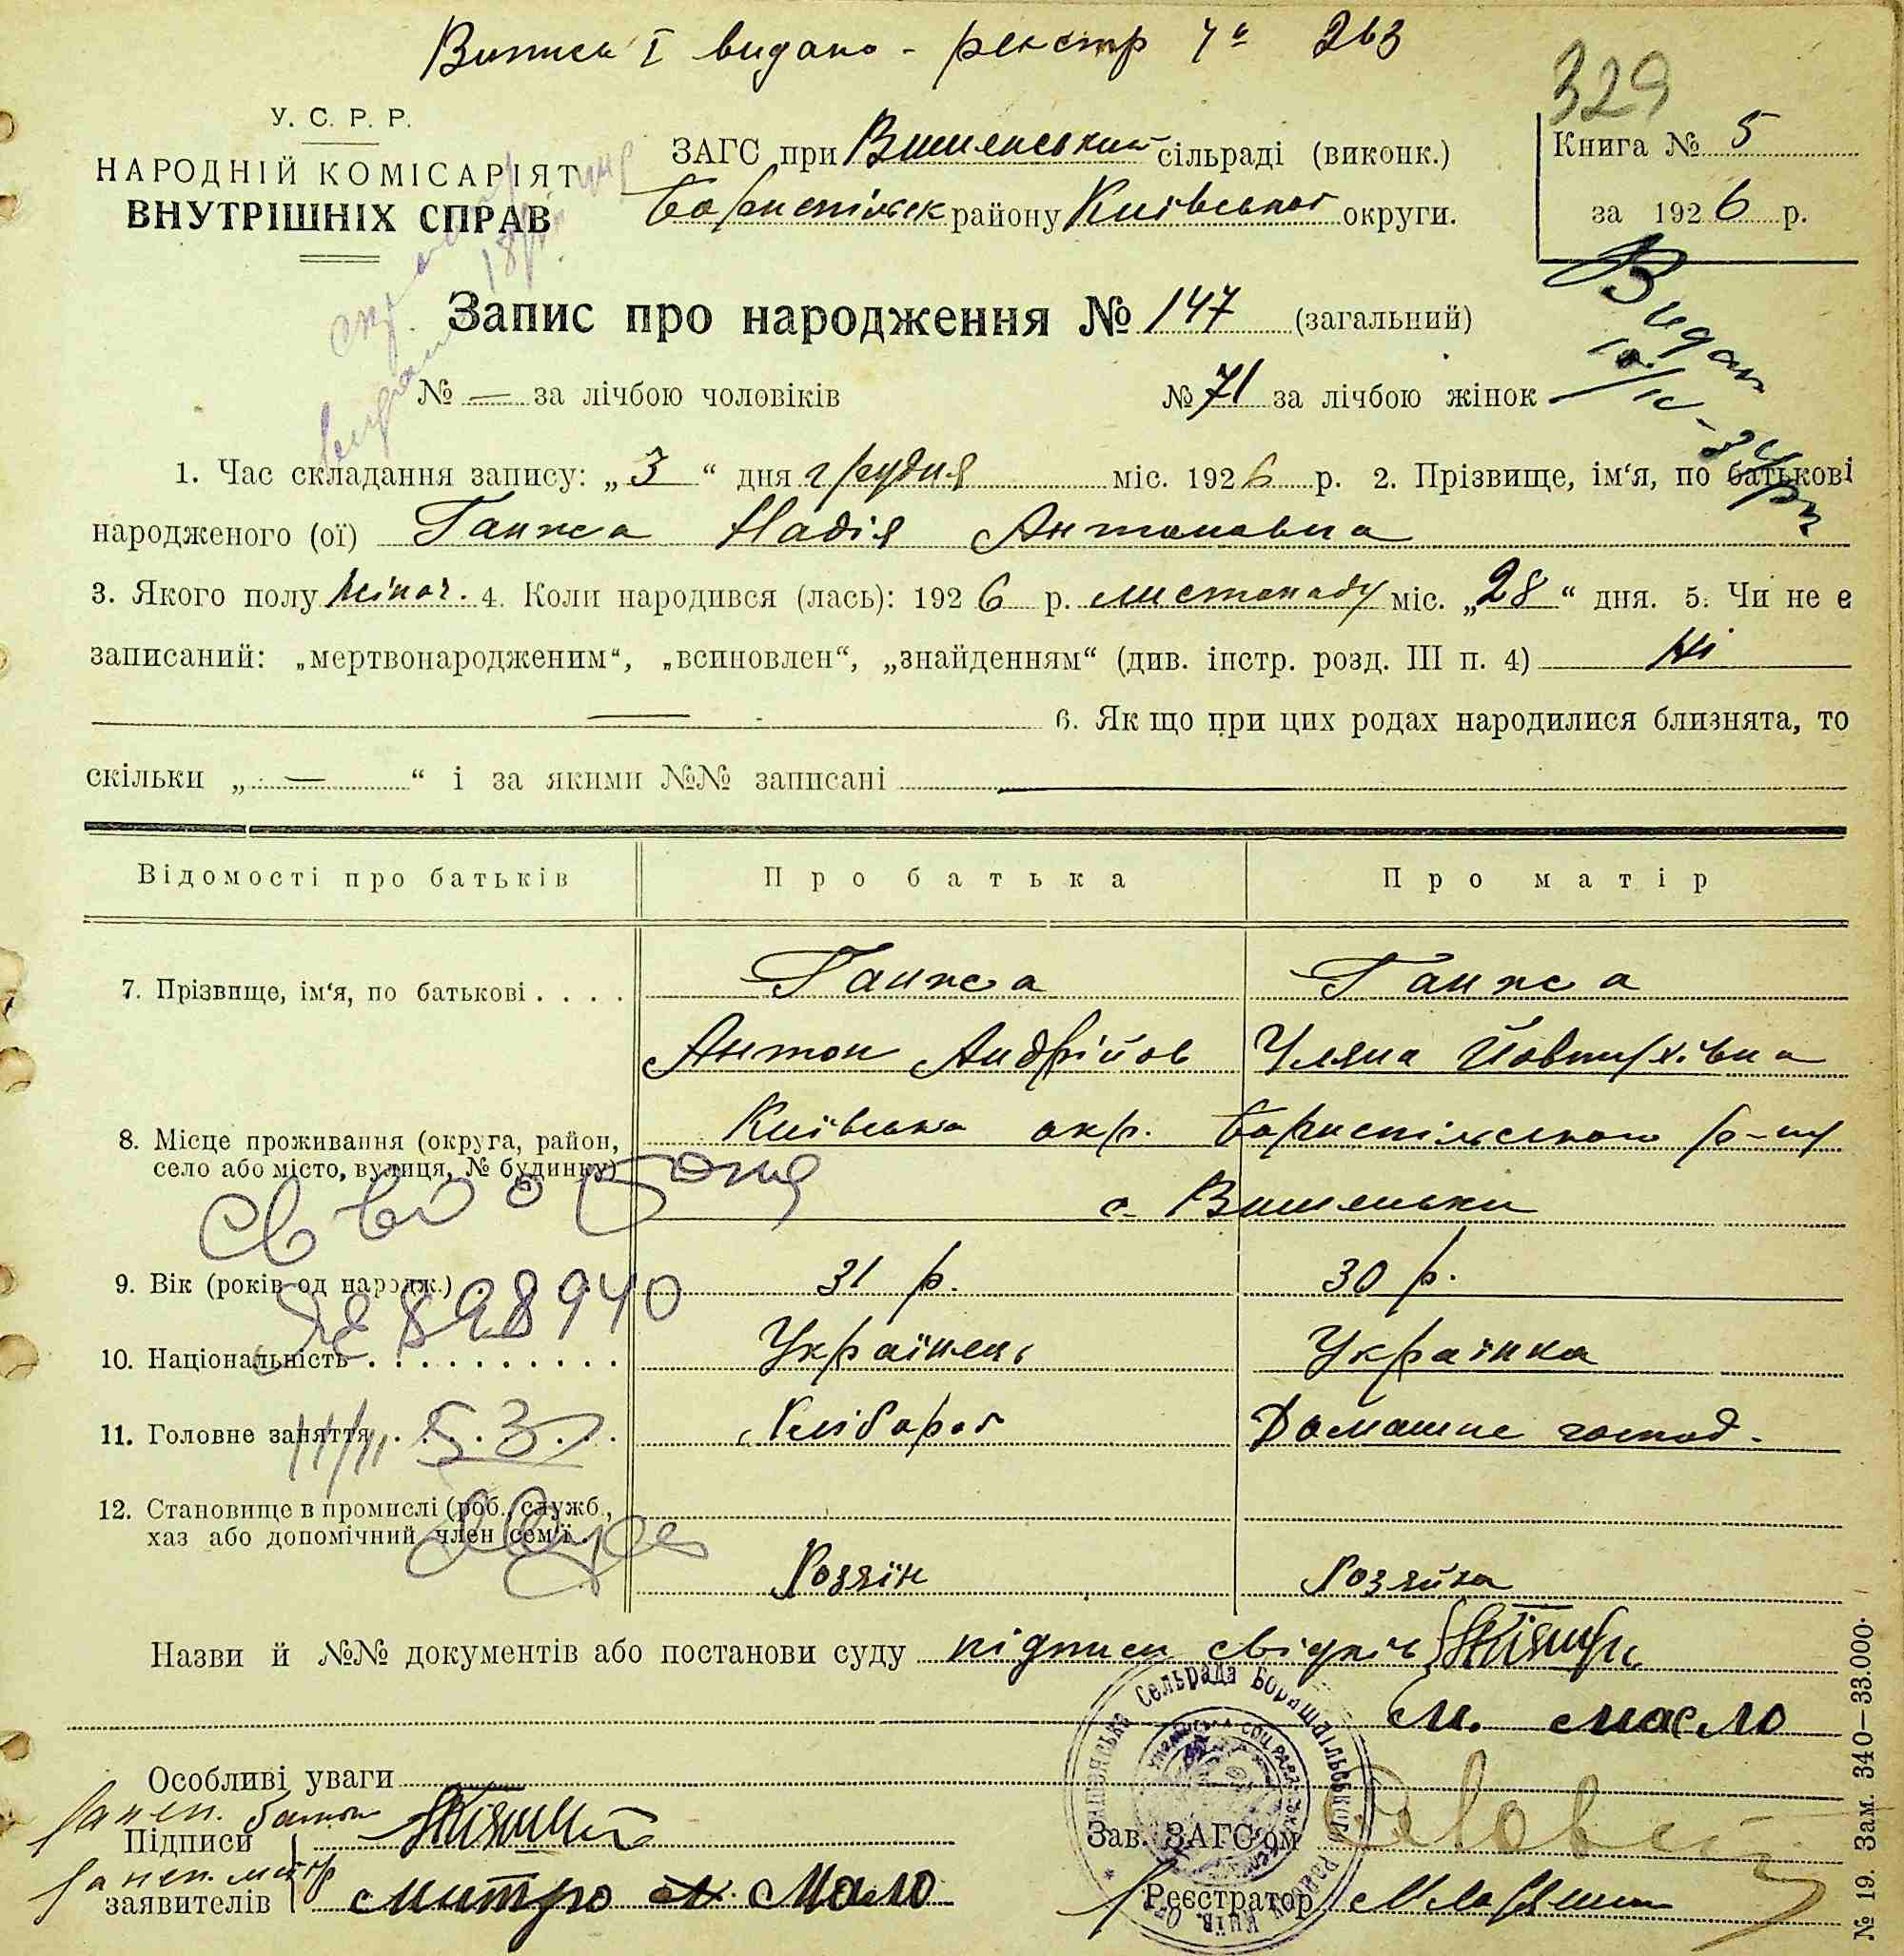 Випись І видано - реєстр Ч° 263
329
У. С. Р. Р.
НАРОДНІЙ КОМІСАРІЯТ
ВНУТРІШНІХ СПРАВ
ЗАГС при Вишенський сільраді (виконк.)
Бориспільск району Київської округи.
Книга № 5
за 1926 р.
Видан
Запис про народження № 147 (загальний)
№ — за лічбою чоловіків № 71 за лічбою жінок
1. Час складання запису: „3“ дня грудня міс. 1926 р. 2. Прізвище, ім‘я, по батькові
народженого (ої) Ганжа Надія Антоновна
3. Якого полу жіноч. 4. Коли народився (лась): 1926 р. листопаду міс. „28“ дня. 5. Чи не є
записаний: „мертвонародженим“, „всиновлен“, „знайденням“ (див. інстр. розд. III п. 4) Ні
— 6. Як що при цих родах народилися близнята, то
скільки „—“ і за якими №№ записані —
Відомості про батьків Про батька Про матір
7. Прізвище, ім‘я, по батькові . . . . Ганжа Ганжа
Антон Андрійов Уляна Йовтухівна
8. Місце проживання (округа, район, Київська окр. Бориспільського р-ну
село або місто, вулиця, № будинку) с. Вишеньки
9. Вік (років од народж.) 31 р. 30 р.
898940
10. Національність . . . . . . . . . . Українець Українка
11. Головне заняття . . . . . . . Хлібороб Домашнє господ.
12. Становище в промислі (роб., служб.,
хаз або допомічний член сем‘ї .)
Хозяїн Хозяйка
Назви й №№ документів або постанови суду підписи свідків
М. Масло
Особливі уваги
Підписи
заявителів Митро Масло
Зав. ЗАГС‘ом
Реєстратор
№ 19. Зам. 340—33.000.